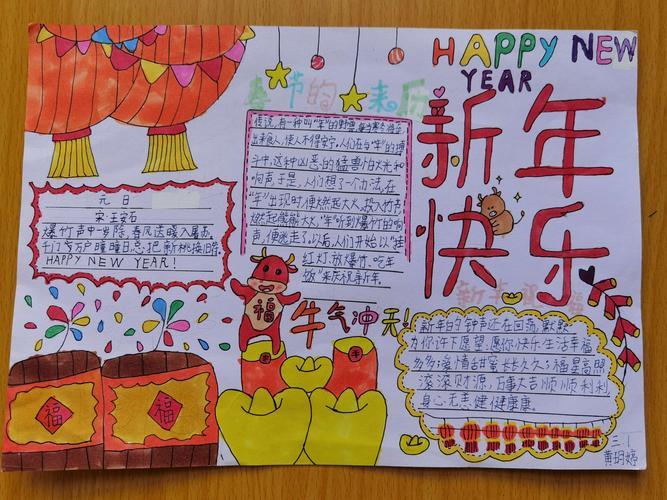 HAPPY NEW
YEAR
新年
快乐
春节的来历
传说,有一种叫"年"的野兽,每当寒冬将尽
出来食人,使人不得安宁,人们在与"年"的搏
斗中,这种凶恶的猛兽怕火光和
响声,于是,人们想了一个办法,在
"年"出现时,便燃起大火,投入竹节
燃起熊熊大火,"年"听到爆竹的响
声,便逃走了.以后,人们开始以"挂
红灯,放爆竹,吃年
饭"来庆祝新年.
元日
宋:王安石
爆竹声中一岁除,春风送暖入屠苏.
千门万户曈曈日,总把新桃换旧符.
HAPPY NEW YEAR!
福
牛气冲天!
福
福
新年祝福
新年的钟声还在回荡,默默
为你许下愿望,愿你快乐生活幸福
多多;爱情甜蜜长长久久;福星高照
滚滚财源;万事大吉顺顺利利
身心无恙健健康康。
三.1